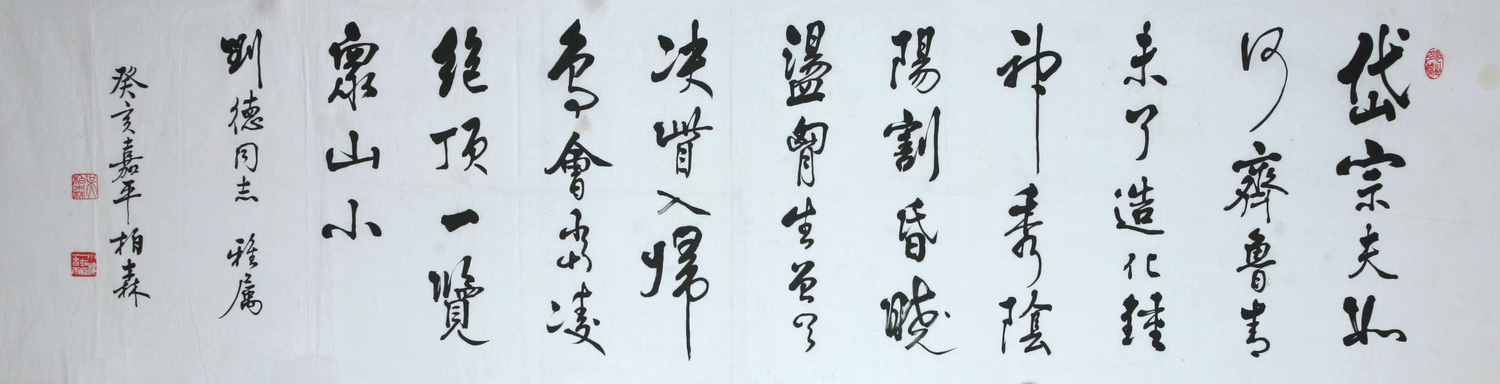 岱宗夫如
何齊魯青
未了造化鍾
神秀陰
陽割昏曉
盪胷生曾云
决眥入歸
鳥會當凌
絶頂一覽
眾山小
劉德同志 雅属
癸亥嘉平柏森